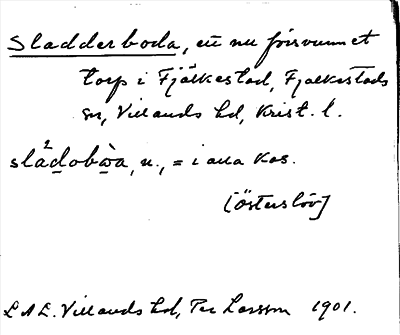 Sladderboda, ett nu försvunnet
torp i Fjälkestad, Fjälkestads
sn, Villands hd, Krist. l.
sládobòa, n., = i alla kas.
[Österslöv]
LAL. Villands hd, Per Larsson 1901.